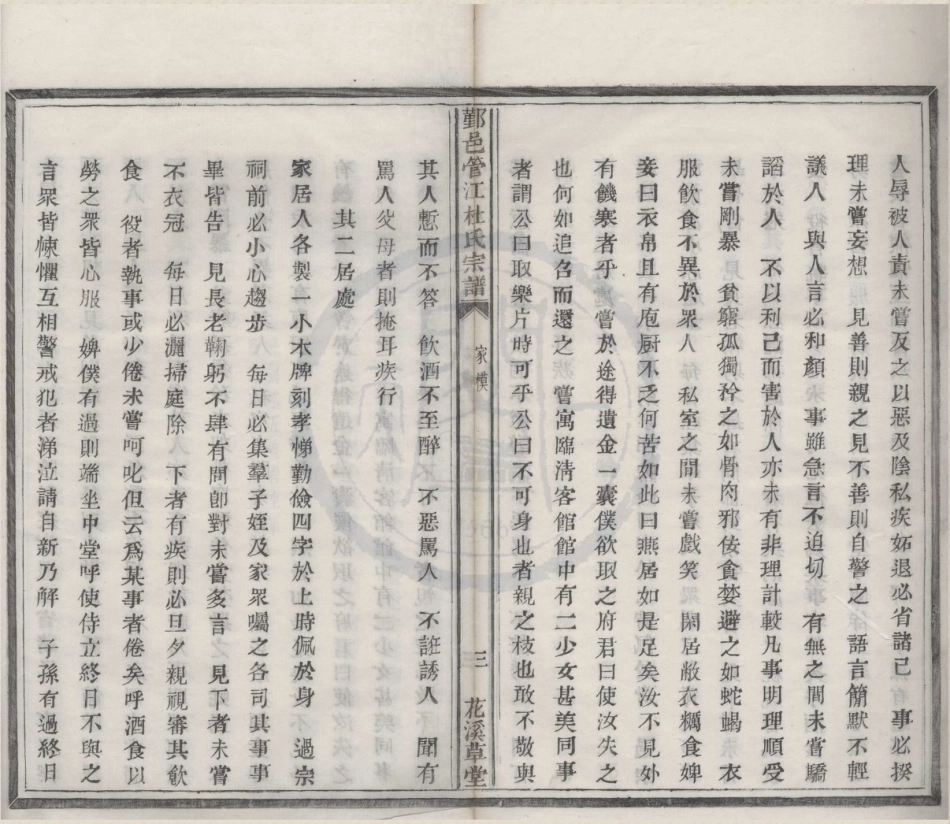 人辱被人責未嘗反之以惡及陰私疾妬退必省諸己　事必揆
理未嘗妄想見善則親之見不善則自警之　語言簡默不輕
議人　與人言必和顏　事雖急言不迫切　有無之間未嘗驕
諂於人　不以利己而害於人亦未有非理計較凡事明理順受
未嘗剛暴　貧窮孤獨矜之如骨肉邪佞貪婪避之如蛇蝎　衣
服飲食不異於衆人　私室之間未嘗戲笑　閑居敝衣糲食婢
妾曰衣帛且有庖厨不乏何苦如此曰燕居如是足矣汝不見外
有饑寒者乎　嘗於途得遺金一囊僕欲取之府君曰使汝失之
也何如追名而還之　嘗寓臨清客館館中有二少女甚美同事
者謂公曰取樂片時可乎公曰不可身也者親之枝也敢不敬與
鄞邑管江杜氏宗譜
家模
三
花溪草堂
其人慙而不答　飲酒不至醉　不惡罵人　不誑誘人　聞有
罵人父母者則掩耳疾行
其二居處
家居人各製一小木牌刻孝悌勤儉四字於上時佩於身　過宗
祠前必小心趨步　每日必集羣子姪及家衆囑之各司其事事
畢皆告　見長老鞠躬不肆有問卽對未嘗多言　見下者未嘗
不衣冠　每日必灑掃庭除　下者有疾則必旦夕親視審其飲
食　役者執事或少倦未嘗呵叱但云爲某事者倦矣呼酒食以
勞之衆皆心服婢僕有過則端坐中堂呼使侍立終日不與之
言衆皆悚懼互相警戒犯者涕泣請自新乃解　子孫有過終日